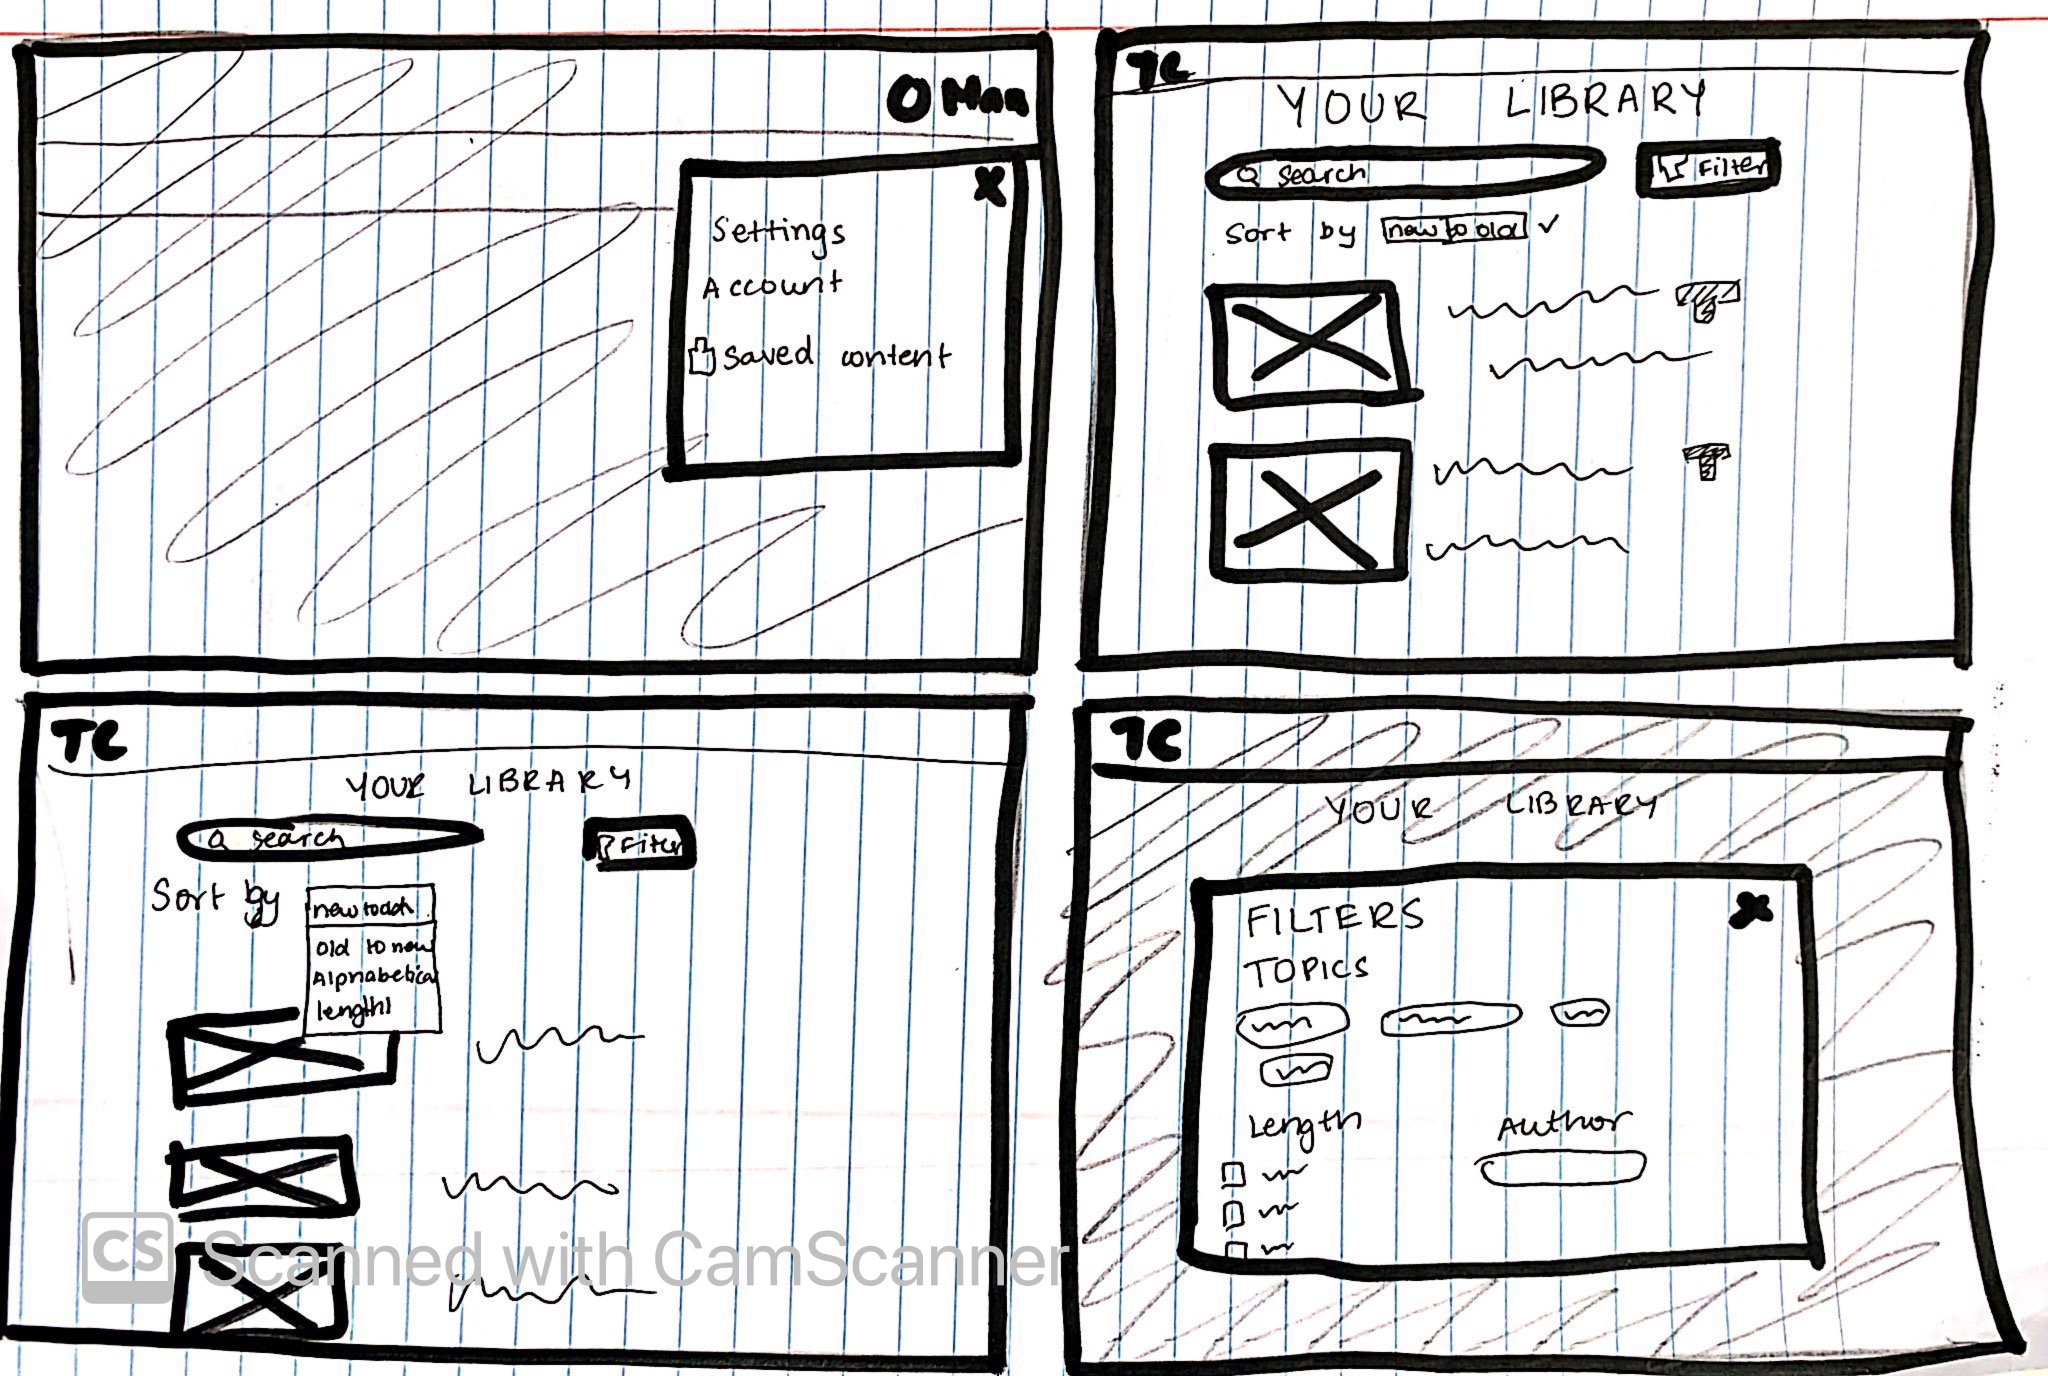 Settings
Account
Saved content
TC
YOUR LIBRARY
search
Filter
Sort by new to old
TC
YOUR LIBRARY
search
Filter
Sort by
Old to new
Alphabetical
length
TC
YOUR LIBRARY
FILTERS
TOPICS
Length Author
CS Scanned with CamScanner